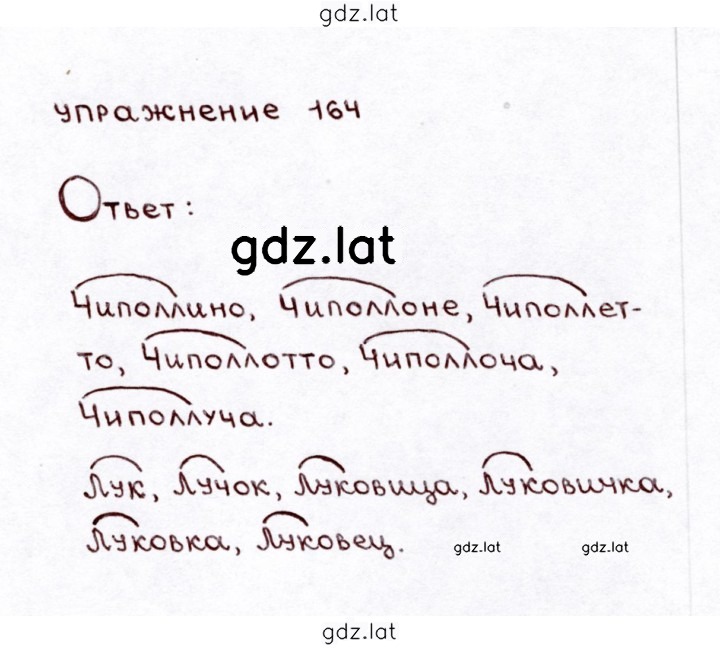 gdz.lat
упражнение 164
Ответ:
gdz.lat
Чиполлино, Чиполлоне, Чиполлет-
то, Чиполлотто, Чиполлоча,
Чиполлуча.
Лук, Лучок, Луковица, Луковичка,
Луковка, Луковец.
gdz.lat gdz.lat
gdz.lat